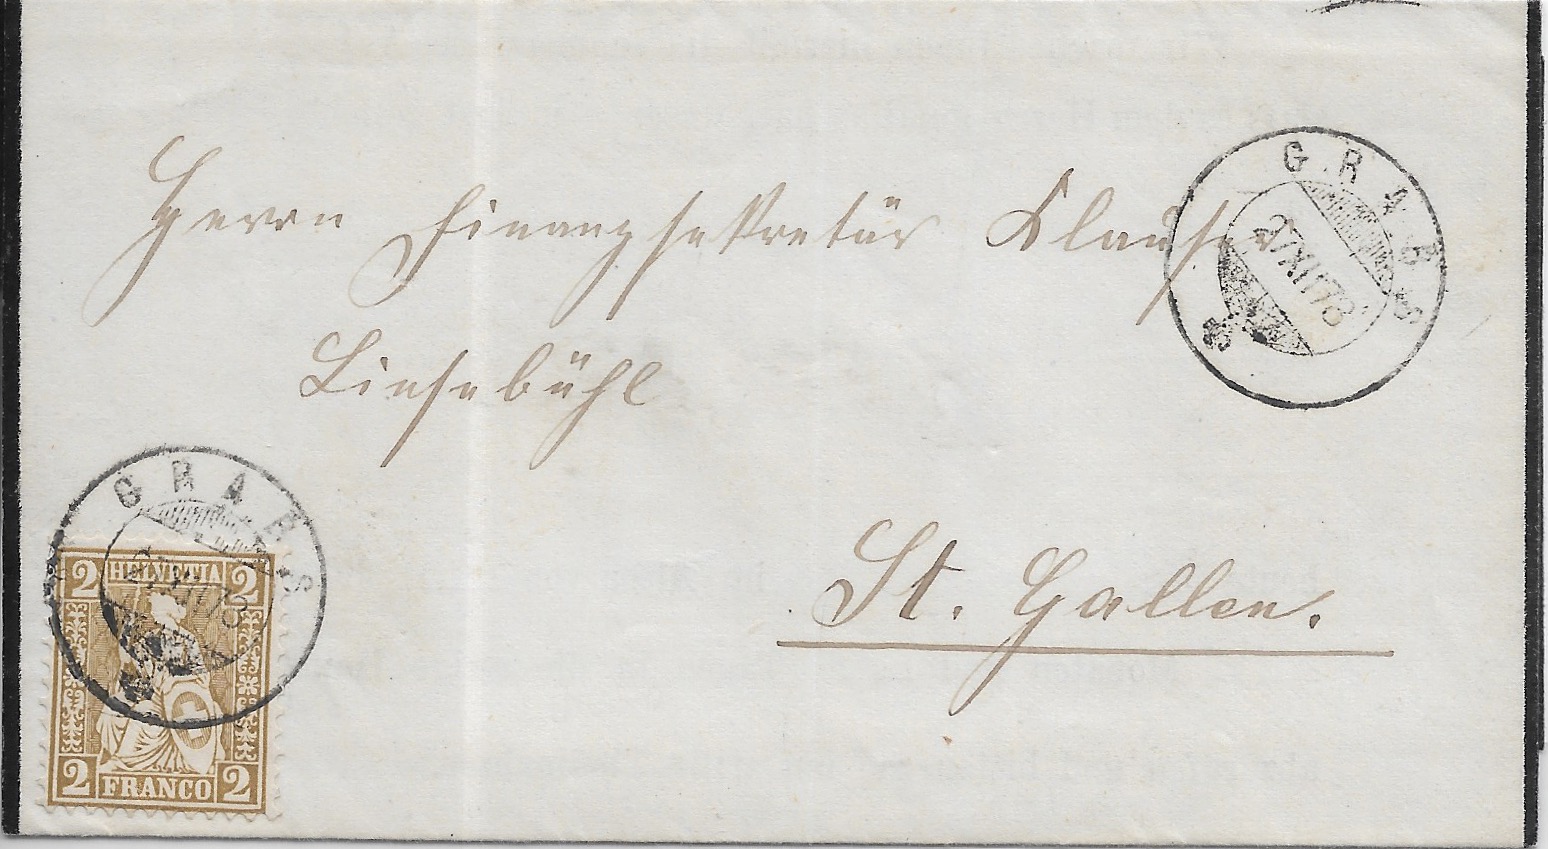 Herrn Finanzsekretär Klauser
Linsebühl
St. Gallen.
GRABS
27 XII 78
GRABS
27 XII 78
2 HELVETIA 2
2 FRANCO 2